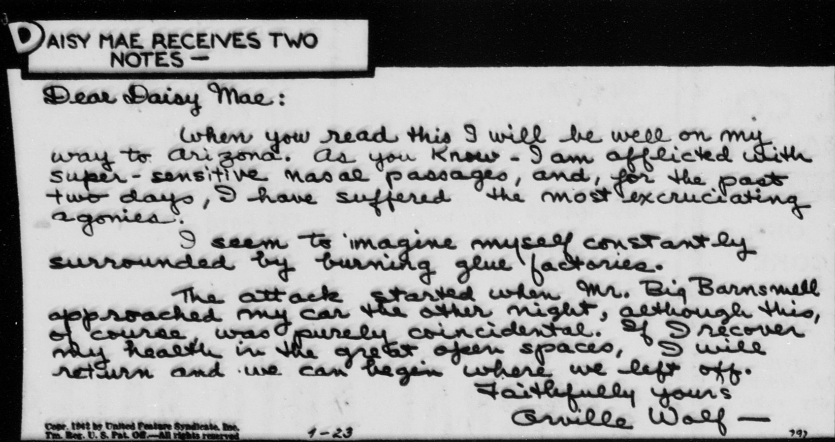 DAISY MAE RECEIVES TWO
NOTES —
Dear Daisy Mae:
When you read this I will be well on my
way to Arizona. As you know - I am afflicted with
super-sensitive nasal passages, and, for the past
two days, I have suffered the most excruciating
agonies.
I seem to imagine myself constantly
surrounded by burning glue factories.
The attack started when Mr. Big Barnsmell
approached my car the other night, although this,
of course was purely coincidental. If I recover
my health in the great open spaces, I will
return and we can begin where we left off.
Faithfully yours
Orville Wolf —
Copr. 1942 by United Feature Syndicate, Inc.
Tm. Reg. U. S. Pat. Off.—All rights reserved
1-23